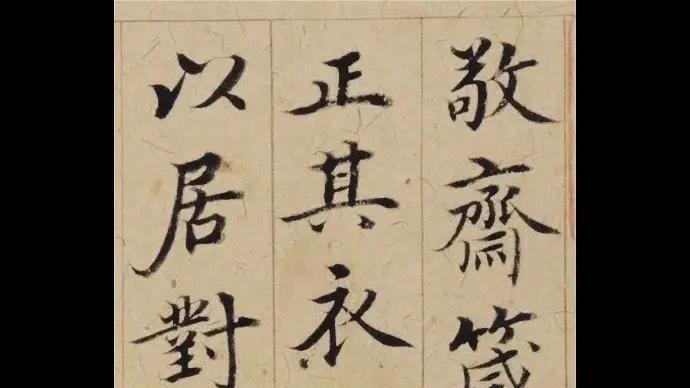 敬齋箴
正其衣
以居對